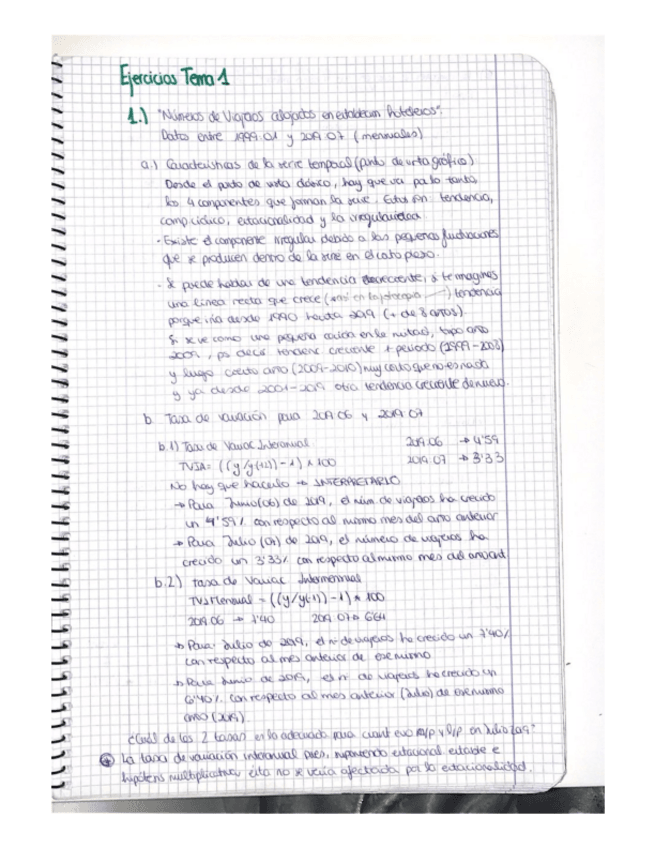 Ejercicios Tema 1
1.) "Número de Viajeros alojados en establecim hoteleros".
Datos entre 1999.01 y 2019.07 (mensuales)
a.) Características de la serie temporal (punto de vista gráfico)
Desde el punto de vista clásico, hay que ver por lo tanto,
los 4 componentes que forman la serie. Estos son: tendencia,
comp cíclico, estacionalidad y la irregularidad
· Existe el componente irregular debido a las pequeñas fluctuaciones
que se producen dentro de la serie en el corto plazo.
· Se puede hablar de una tendencia creciente, si te imaginas
una línea recta que crece ( en la fotocopia ) tendencia
porque iría desde 1990 hasta 2019 (+ de 8 años).
Si se ve como una pequeña caída en la mitad, tipo año
2009, es decir tendenc creciente + periodo (1999-2008)
y luego cortito año (2009-2010) muy corto que no es nada
y ya desde 2001-2019 otra tendencia creciente de nuevo.
b. Tasa de variación para 2019.06 y 2019.07
b.1) Tasa de Variac Interanual 2019.06 → 4'59
TVIA = ((y/y(-12))-1) x 100 2019.07 → 3'33
No hay que hacerlo → INTERPRETARLO
→ Para Junio (06) de 2019, el núm. de viajeros ha crecido
un 4'59% con respecto al mismo mes del año anterior
→ Para Julio (07) de 2019, el número de viajeros ha
crecido un 3'33% con respecto al mismo mes del año ant
b.2) Tasa de Variac Intermensual
TVIMensual = ((y/y(-1))-1) x 100
2019.06 → 7'40 2019.07 → 6'64
→ Para Julio de 2019, el nº de viajeros ha crecido un 7'40%
con respecto al mes anterior de ese mismo
→ Para Junio de 2019, el nº. de viajeros ha crecido un
6'40% con respecto al mes anterior (Julio) de ese mismo
año (2019).
¿Cuál de las 2 tasas es la adecuada para cuant evo m/p y l/p en Julio 2019?
La tasa de variación interanual pues, suponiendo estacional estable e
hipótesis multiplicativa, esta no se vería afectada por la estacionalidad.